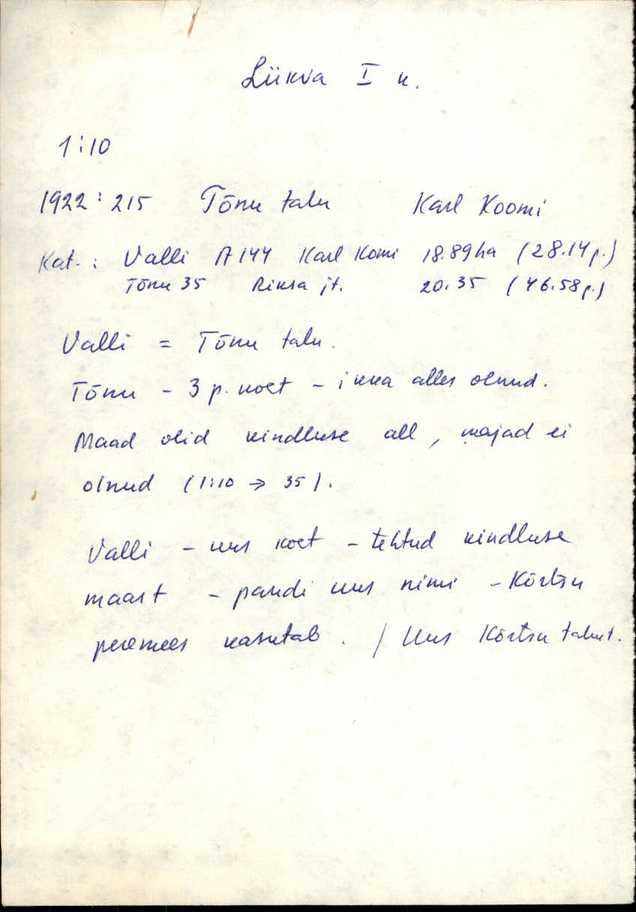 Liikva I k.
1:10
1922: 215 Tõnu talu Karl Koomi
Kat.: Valli A144 Karl Komi 18.89ha (28.14p.)
Tõnu 35 Riksa jt. 20.35 (46.58p.)
Valli = Tõnu talu.
Tõnu - 3 p. koet - ikka alles olnud.
Maad olid kindluse all, majad ei
olnud (1:10 → 35).
Valli - uus koet - tehtud kindluse
maast - pandi uus nimi - Kõrtsu
peremees kasutab. / Uus Kõrtsu talust.